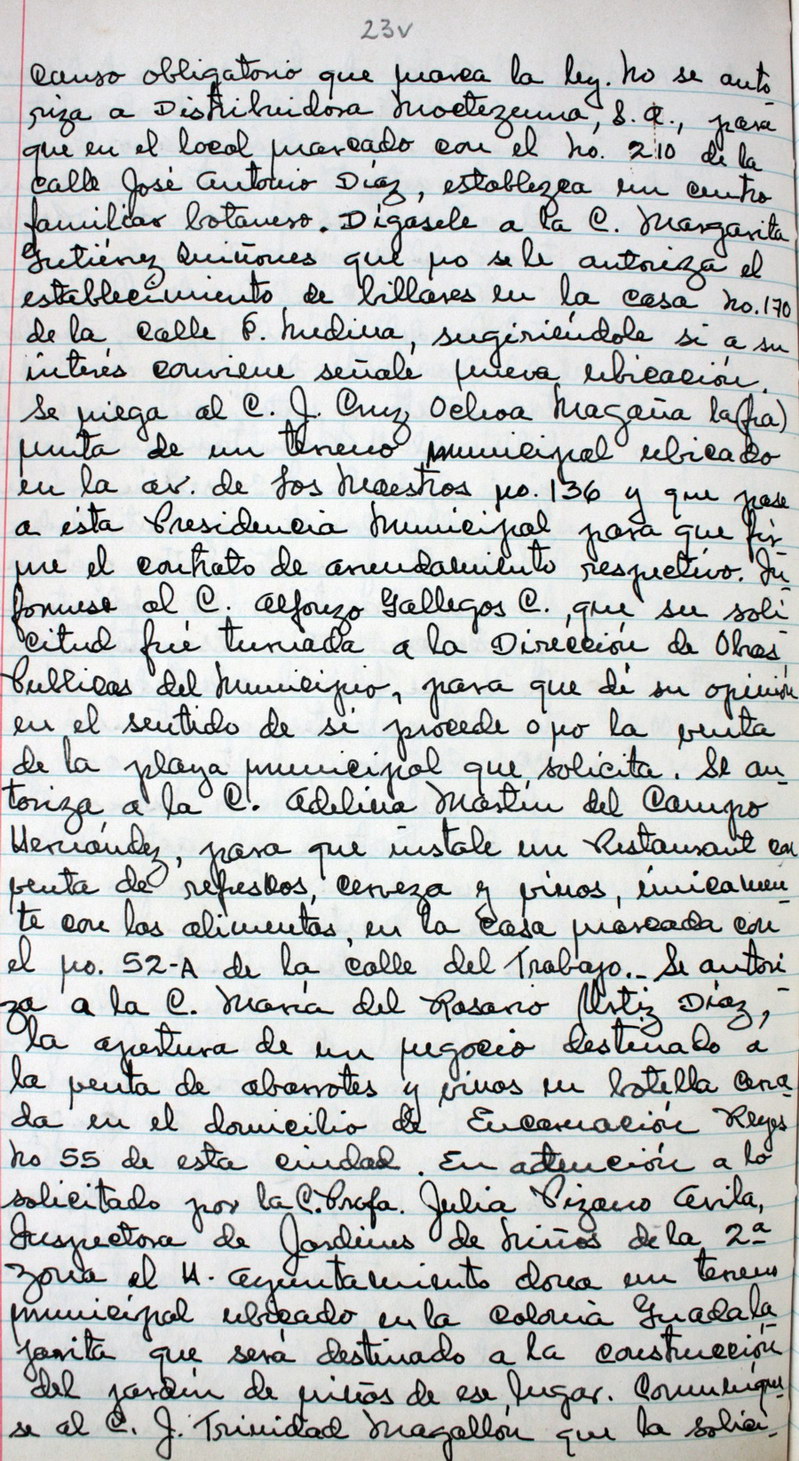 23v
causo obligatorio que marca la ley. No se auto
riza a Distribuidora Moctezuma, S.A., para
que en el local marcado con el No. 210 de la
calle José Antonio Díaz, establezca un centro
familiar botanero. Dígasele a la C. Margarita
Gutiérrez Quiñones que no se le autoriza el
establecimiento de billares en la casa No. 170
de la calle F. Medina, sugiriéndole si a su
interés conviene señale nueva ubicación.
Se niega al C. J. Cruz Ochoa Magaña la
venta de un terreno municipal ubicado
en la av. de los Maestros no. 136 y que pase
a ésta Presidencia Municipal para que fir
me el contrato de arrendamiento respectivo. In
fórmese al C. Alfonzo Gallegos C., que su soli
citud fué turnada a la Dirección de Obras
Publicas del Municipio, para que dé su opinión
en el sentido de si procede o no la venta
de la playa municipal que solicita. Se au
toriza a la C. Adelina Martín del Campo
Hernández, para que instale un Restaurant con
venta de refrescos, cerveza y vinos, únicamen-
te con los alimentos, en la casa marcada con
el no. 52-A de la calle del Trabajo.- Se autori
za a la C. María del Rosario Ortiz Díaz,
la apertura de un negocio destinado a
la venta de abarrotes y vinos en botella cerra
da en el domicilio de Encarnación Reyes
No 55 de esta ciudad. En atención a lo
solicitado por la C. Profa. Julia Pizano Avila,
Inspectora de Jardines de Niños de la 2ª
zona el H. Ayuntamiento dona un terreno
municipal ubicado en la colonia Guadala
jarita que será destinado a la construcción
del jardín de niños de ese lugar. Comuníque
se al C. J. Trinidad Magallón que la solici-